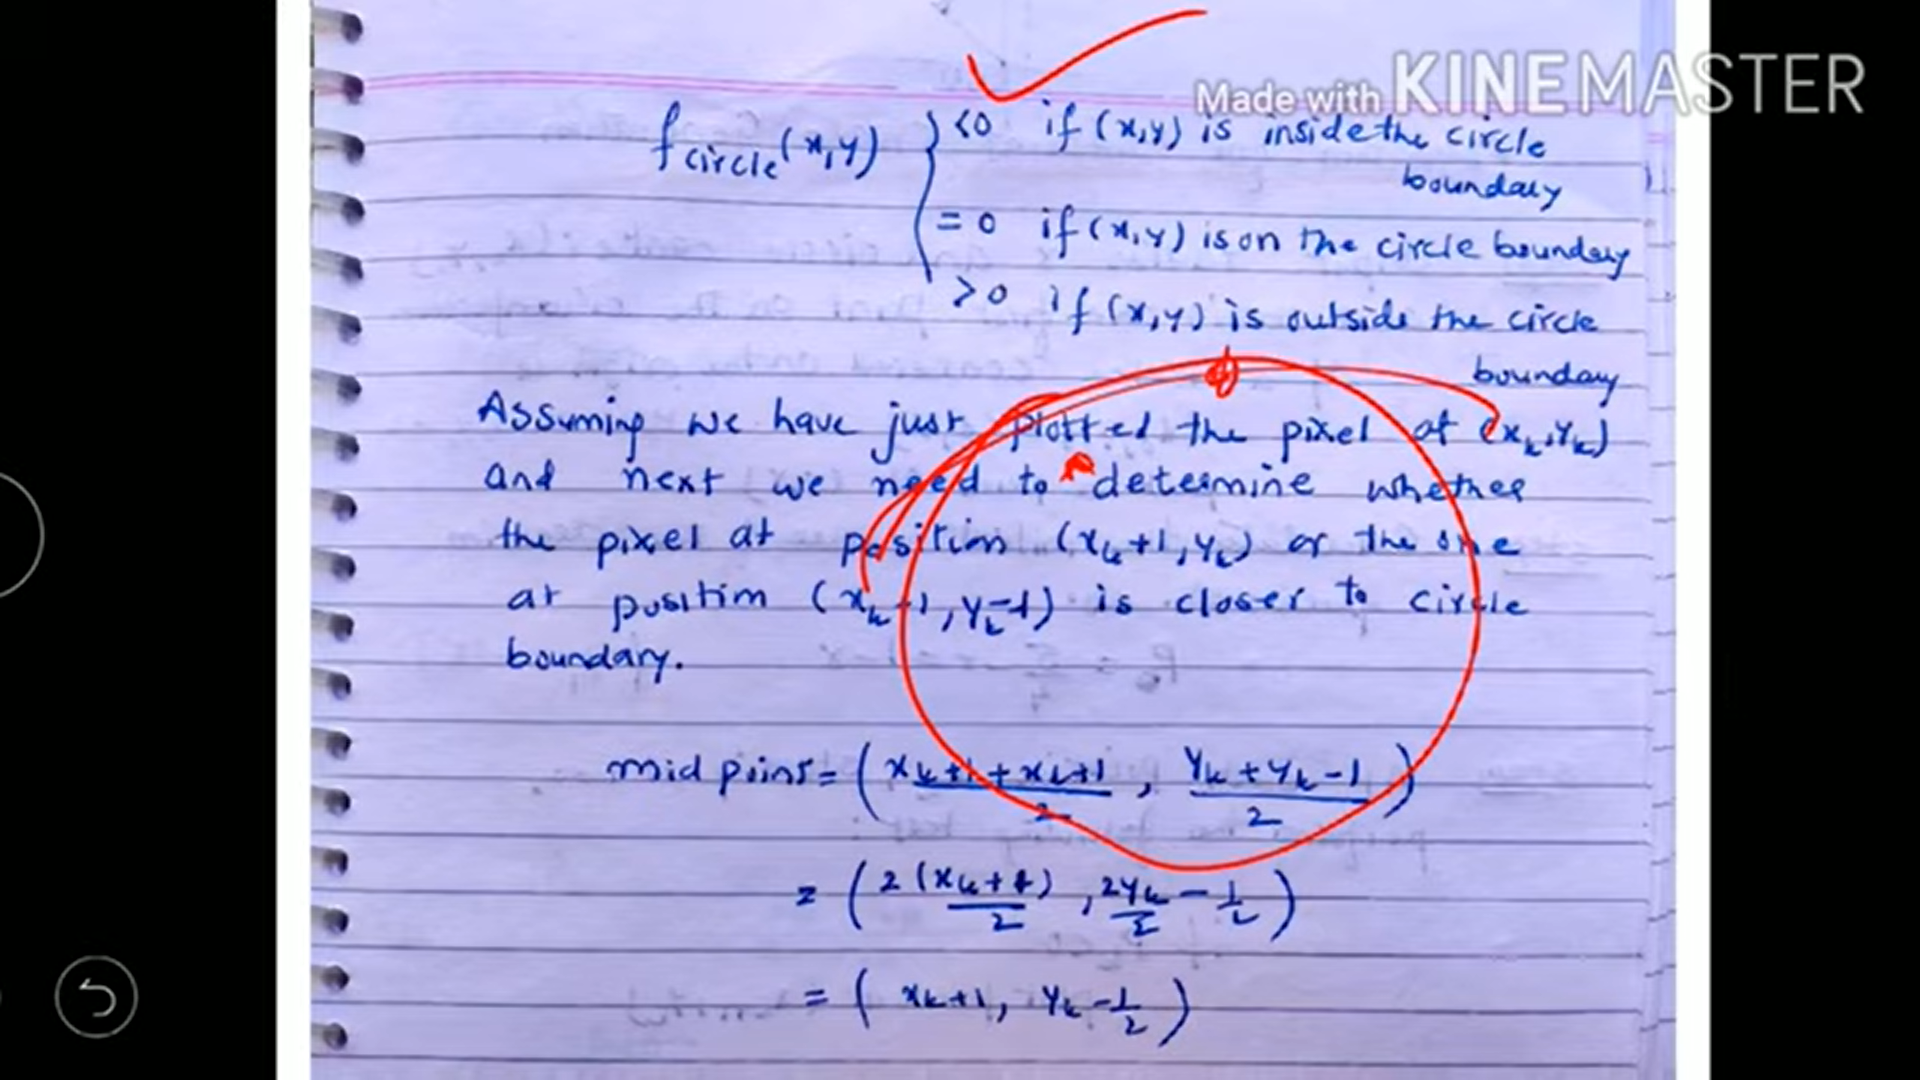 Made with KINEMASTER
f circle (x,y) { <0 if (x,y) is inside the circle
boundary
= 0 if (x,y) is on the circle boundary
>0 if (x,y) is outside the circle
boundary
Assuming we have just plotted the pixel at (xₖ,yₖ)
and next we need to determine whether
the pixel at position (xₖ+1, yₖ) or the one
at position (xₖ+1, yₖ-1) is closer to circle
boundary.
mid point = ( xₖ+1+xₖ+1 / 2 , yₖ+yₖ-1 / 2 )
= ( 2(xₖ+1) / 2 , 2yₖ / 2 - 1/2 )
= ( xₖ+1, yₖ-1/2 )